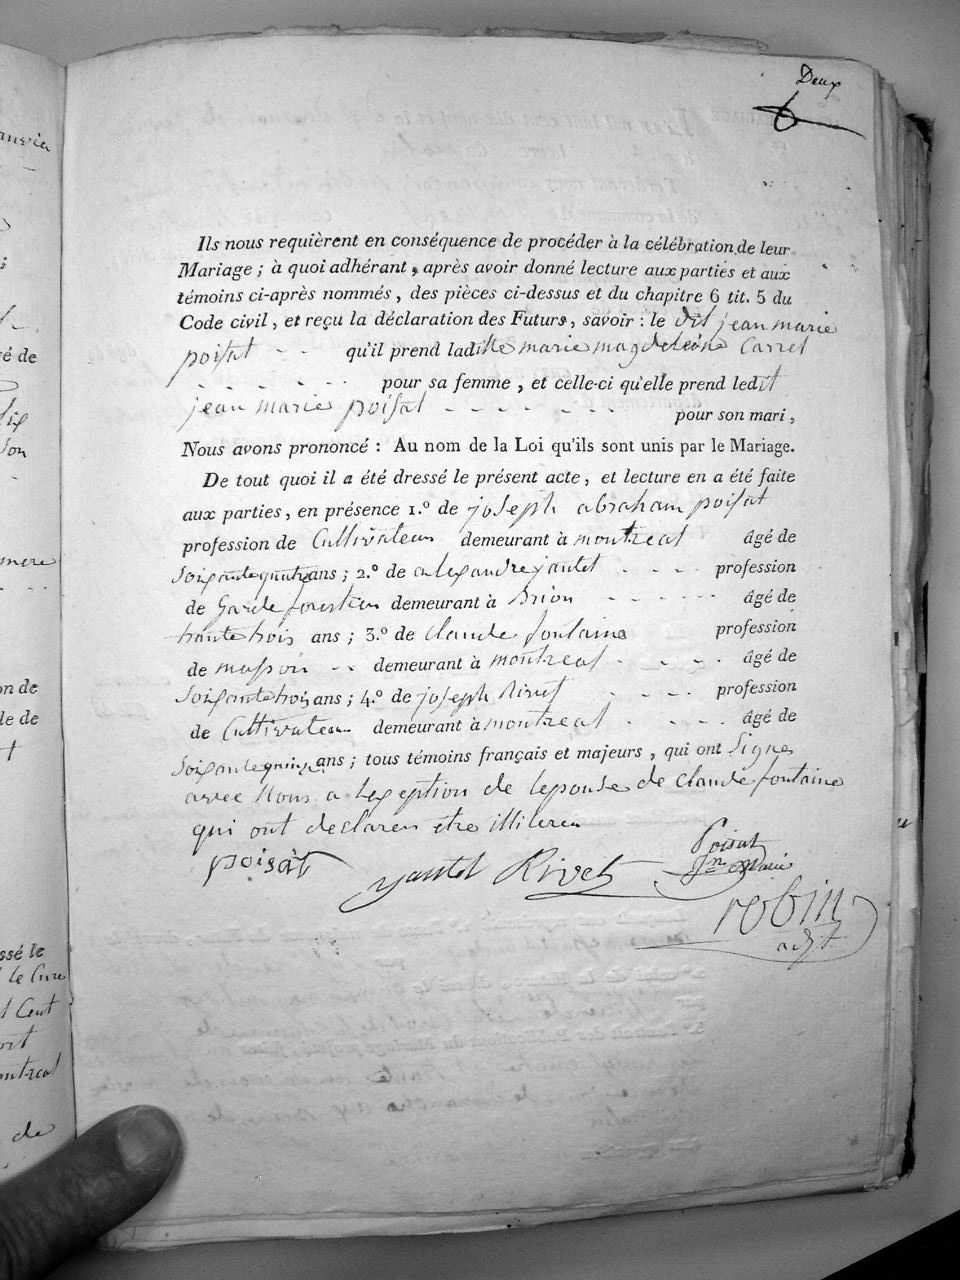 Deux
Ils nous requièrent en conséquence de procéder à la célébration de leur
Mariage ; à quoi adhérant , après avoir donné lecture aux parties et aux
témoins ci-après nommés , des pièces ci-dessus et du chapitre 6 tit. 5 du
Code civil , et reçu la déclaration des Futurs , savoir : le dit jean marie
poisat - - qu'il prend laditte marie magdeleine Carret
- - - - - - pour sa femme , et celle-ci qu'elle prend ledit
jean marie poisat - - - - - - - pour son mari ,
Nous avons prononcé : Au nom de la Loi qu'ils sont unis par le Mariage.
De tout quoi il a été dressé le présent acte , et lecture en a été faite
aux parties , en présence 1.º de joseph abraham poisat
profession de Cultivateur demeurant à montreal âgé de
soixantequatre ans ; 2.º de alexandre jantet - - - - profession
de Garde forestier demeurant à Brion - - - - - - âgé de
trente trois ans ; 3.º de Claude fontaine profession
de masson - - demeurant à montreal - - - - âgé de
soixantetrois ans ; 4.º de joseph Rivet - - - - profession
de Cultivateur demeurant à montreal - - - - âgé de
soixantequinze ans ; tous témoins français et majeurs , qui ont signe
avec Nous a lexeption de lepouse de claude fontaine
qui ont declaren etre illiteren
poisat
jantet Rivet
Poisat
Jn Marie
robin
adjt
anvié
é de
Dix
mere
on de
le de
ssé le
le Cure
Cent
montreal
de